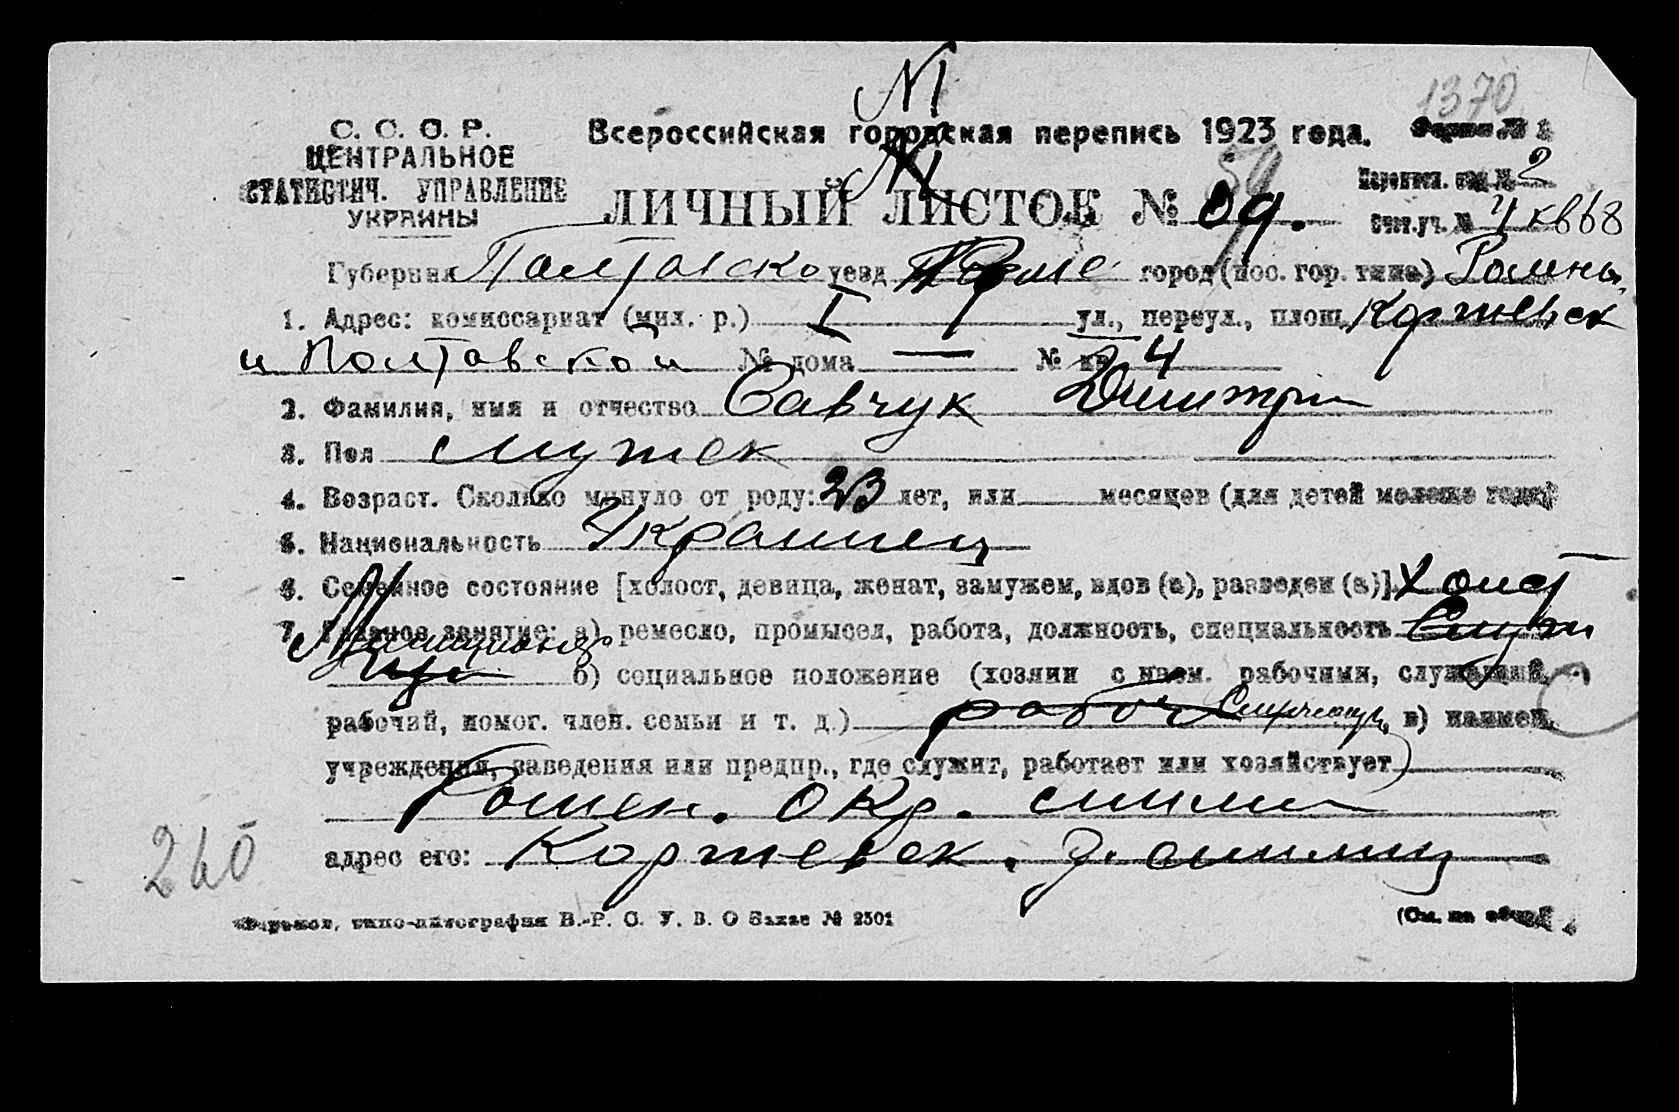 №
1370
С. С. С. Р.
ЦЕНТРАЛЬНОЕ
СТАТИСТИЧ. УПРАВЛЕНИЕ
УКРАИНЫ
Всероссийская городская перепись 1923 года.
Форма № 2
59
Переписн. отд. № 2
ЛИЧНЫЙ ЛИСТОК № 09.
Счет. уч. № 4 кв 68
Губерния Полтавско уезд город (пос. гор. типа) Ромны
1. Адрес: комиссариат (мил. р.) I ул., переул., площ. Коржевск
и Полтавской № дома — № кв 4
2. Фамилия, имя и отчество Савчук Дмитрий
3. Пол мужск
4. Возраст. Сколько минуло от роду: 23 лет, или месяцев (для детей моложе года)
5. Национальность Украинец
6. Семейное состояние [холост, девица, женат, замужем, вдов (а), разведен (а)] холост
7. Главное занятие: а) ремесло, промысел, работа, должность, специальность
Милиционер
б) социальное положение (хозяин с наем. рабочими, служащий,
рабочий, помог. член. семьи и т. д.) рабоч Служащий в) наимен.
учреждения, заведения или предпр., где служит, работает или хозяйствует)
Ромен. Окр. милиц
адрес его: Коржевск. з. милиц
260
Харьков, типо-литография В.-Р. С. У. В. О Заказ № 2501
(См. на обор.)